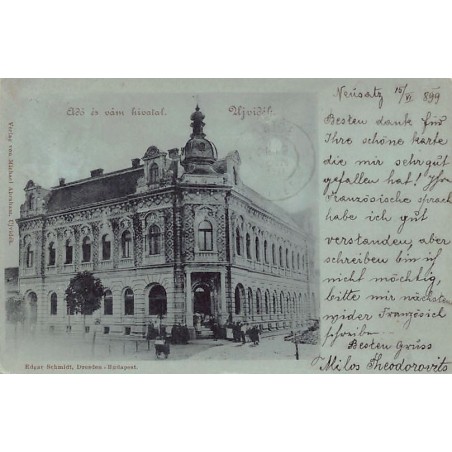 Adó és vám hivatal. Ujvidék.
Verlag von Michael Abraham, Ujvidék.
Neusatz 16/VI 899
Besten dank für
Ihre schöne karte
die mir sehr gut
gefallen hat! Ihr
Französische sprach
habe ich gut
verstanden, aber
schreiben bin ich
nicht mächtig,
bitte mir nächsten
wider Französich
schreiben.
Besten Grüss
Milos Theodorovits
Edgar Schmidt, Dresden-Budapest.